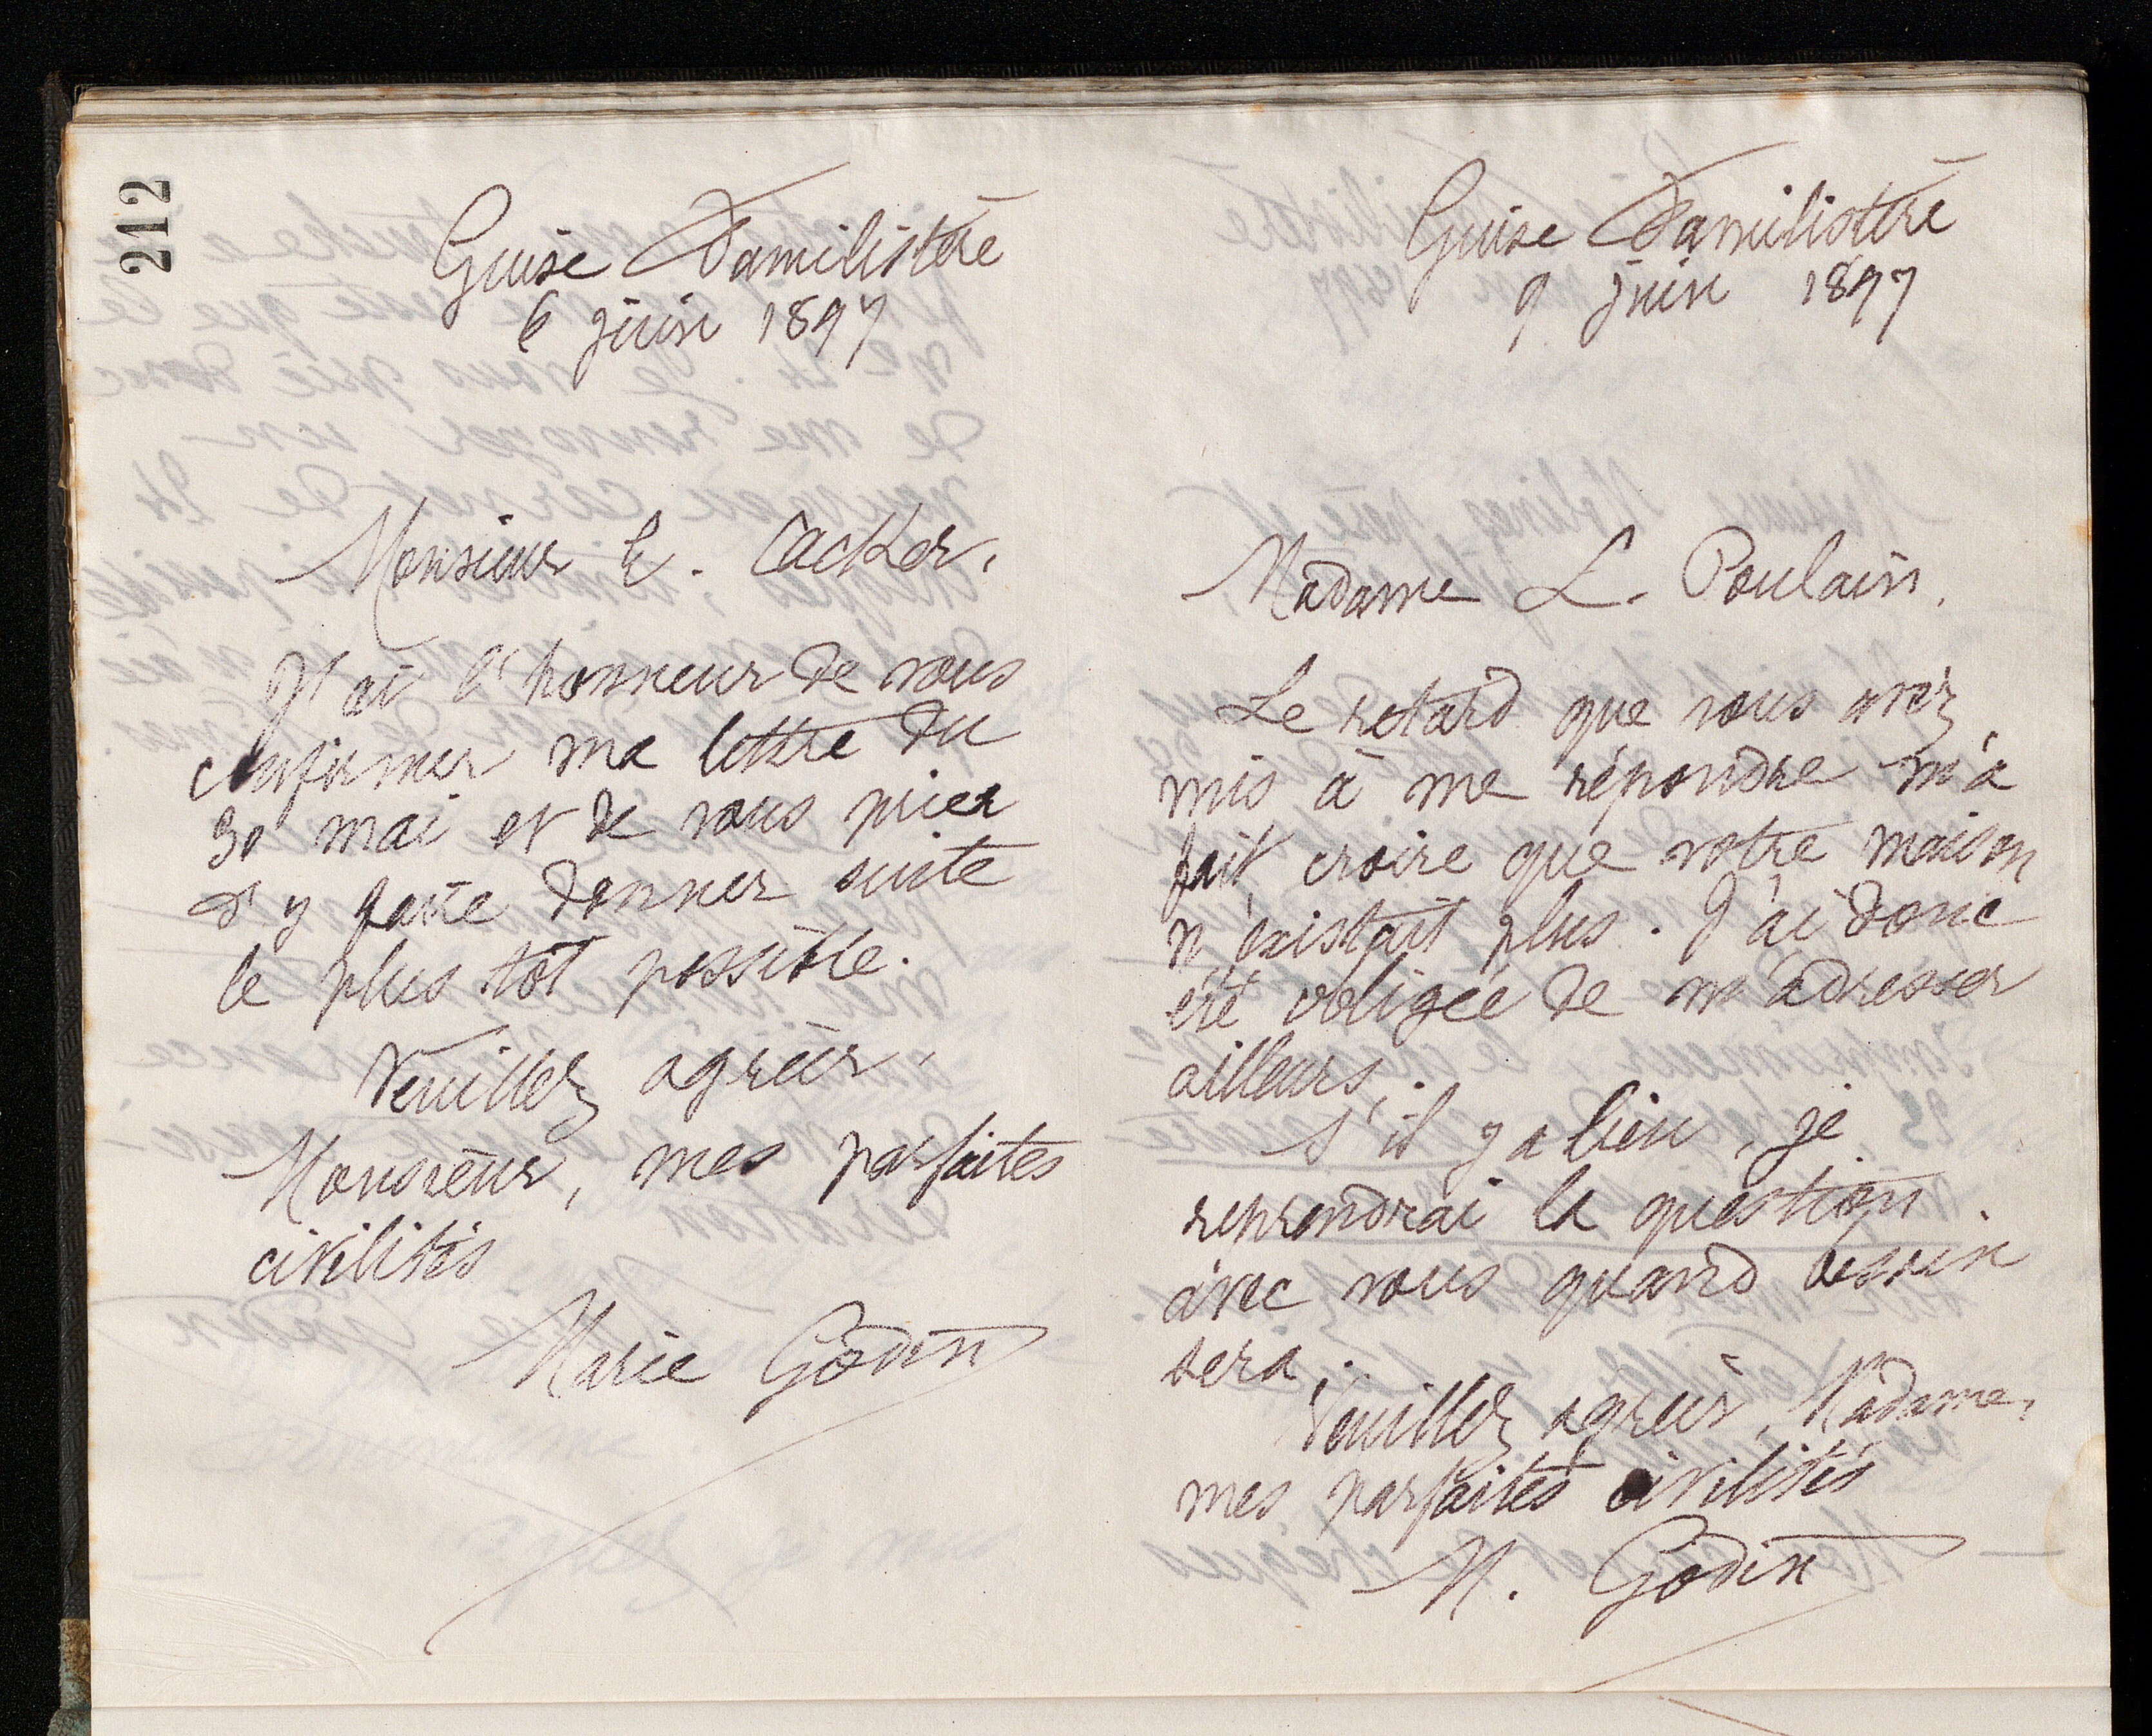 212
Guise Familistère
6 juin 1897
Monsieur E. Cacker,
J'ai l'honneur de vous
confirmer ma lettre du
30 mai et de vous prier
d'y faire donner suite
le plus tôt possible.
Veuillez agréer,
Monsieur, mes parfaites
civilités
Marie Godin
Guise Familistère
9 juin 1897
Madame L. Poulain,
Le retard que vous avez
mis à me répondre m'a
fait croire que votre maison
n'existait plus. J'ai donc
été obligée de m'adresser
ailleurs.
S'il y a lieu, je
reprendrai la question
avec vous quand besoin
sera.
Veuillez agréer, Madame,
mes parfaites civilités
M. Godin